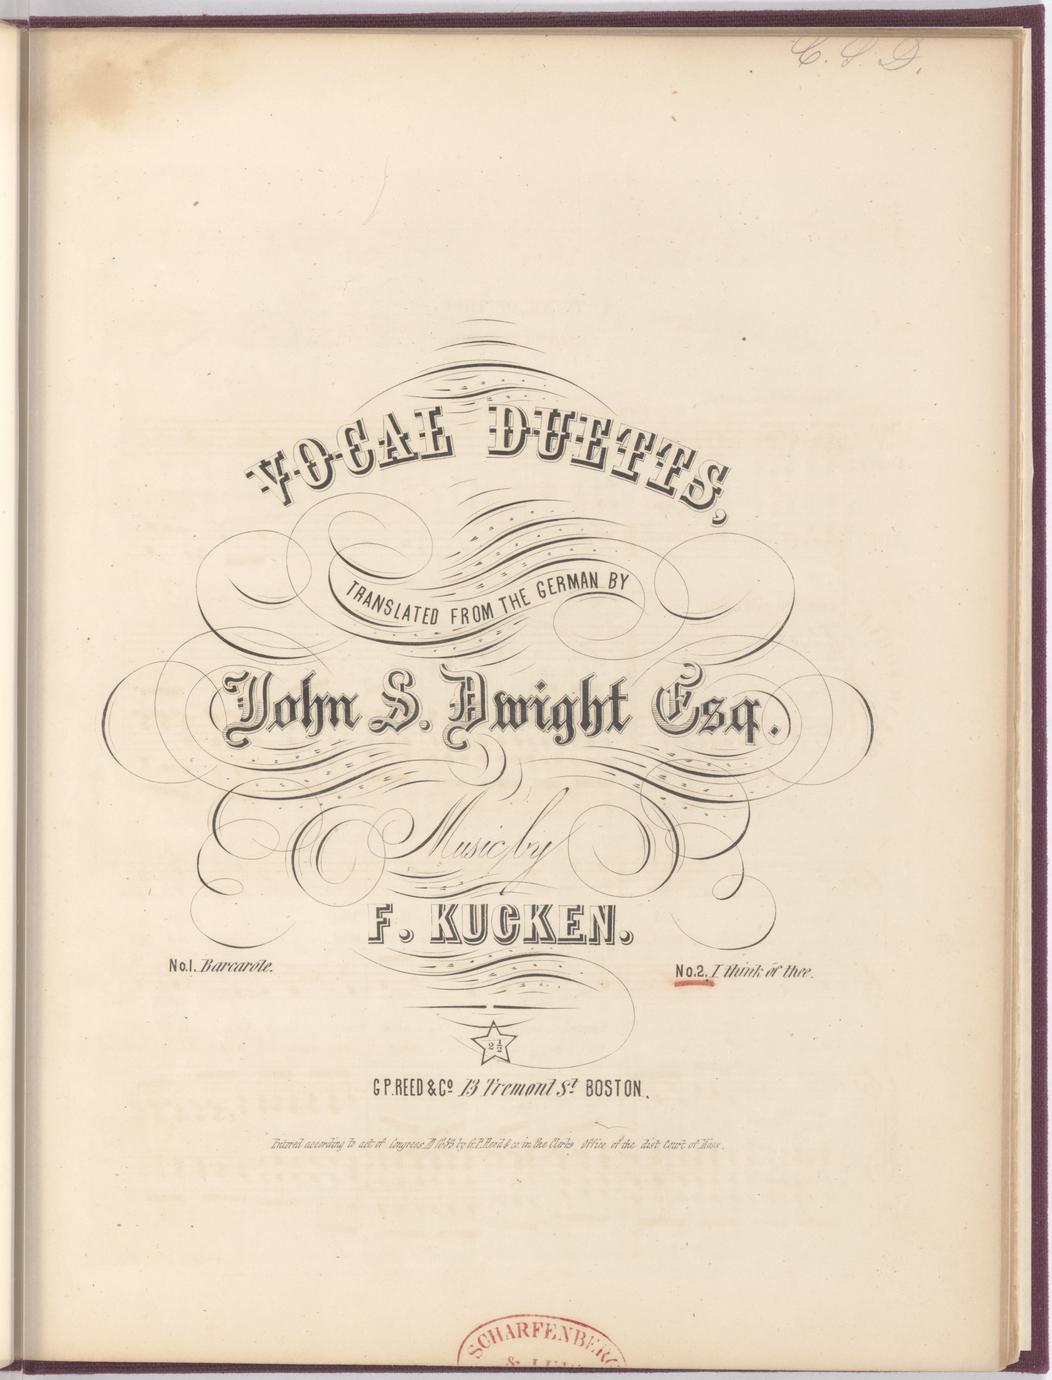 C. S. D.
VOCAL DUETTS,
TRANSLATED FROM THE GERMAN BY
John S. Dwight Esq.
Music by
F. KUCKEN.
No.1. Barcarole.
No.2. I think of thee.
2 1/2
G P. REED & Co. 13 Tremont St. BOSTON.
Entered according to act of Congress, D 1853 by G. P. Reed & co. in the Clerks office of the dist Court of Mass.
SCHARFENBERG
&